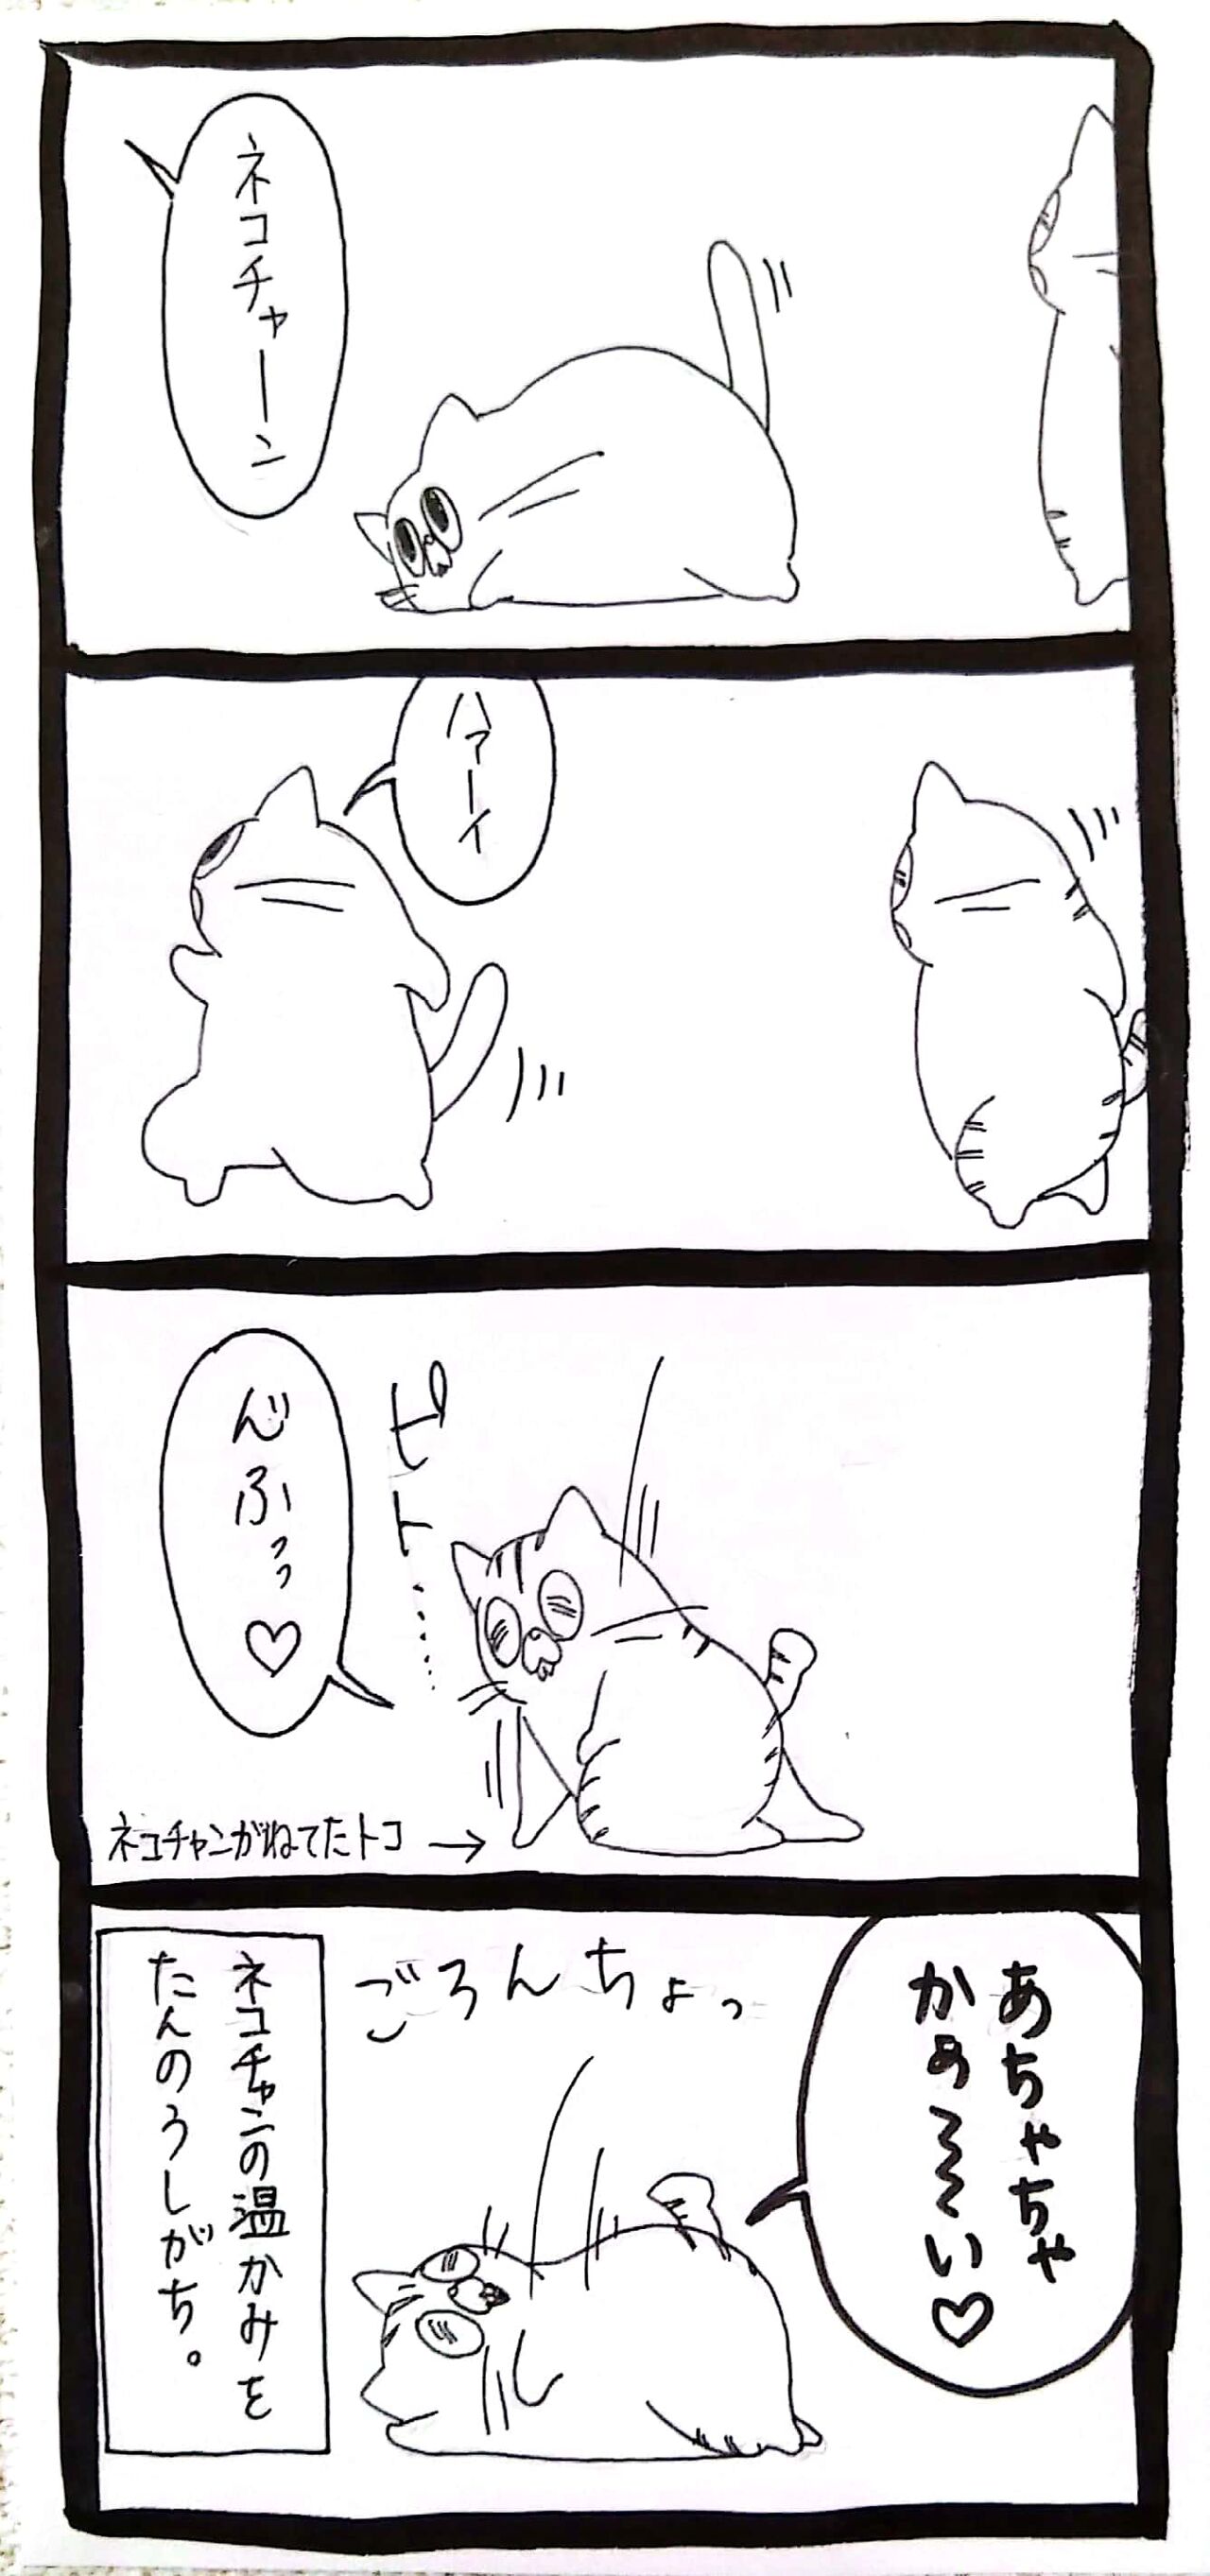 ネコチャーン
ハァーイ
ピト……
んふっっ♡
ネコチャンがねてたトコ→
あちゃちゃ
かぁ〜〜い♡
ごろんちょっ
ネコチャンの温かみを
たんのうしがち。